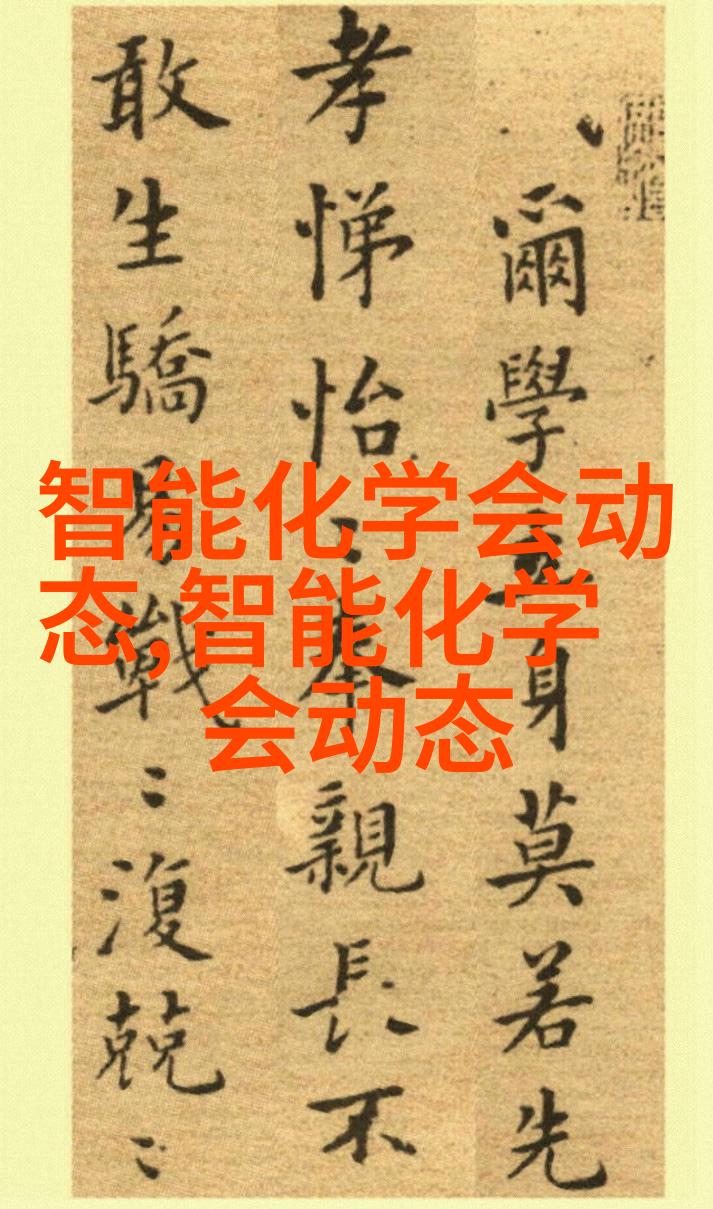 智能化学会动
态,智能化学
会动态
爾學立身莫若先
孝悌怡〻奉親長不
敢生驕易戰〻復兢〻